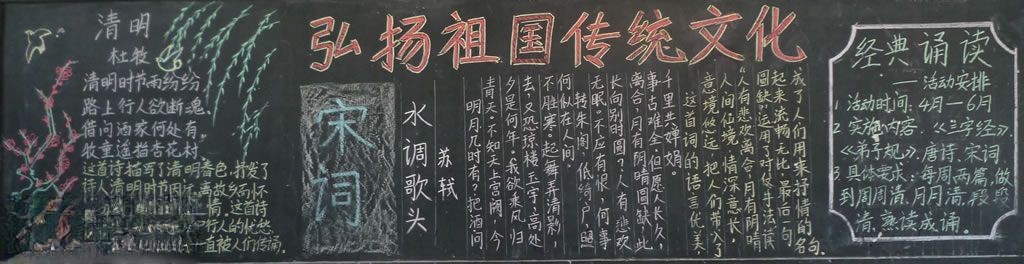 弘扬祖国传统文化
清明
杜牧
清明时节雨纷纷
路上行人欲断魂
借问酒家何处有
牧童遥指杏花村
这首诗描写了清明春色,打发了
诗人清明时节因远离故乡而怀
情.这首诗
行人的忧愁
一直被人们传诵.
宋词
水调歌头
苏轼
明月几时有?把酒问
青天.不知天上宫阙,今
夕是何年.我欲乘风归
去,又恐琼楼玉宇,高处
不胜寒.起舞弄清影,
何似在人间.
转朱阁,低绮户,照
无眠.不应有恨,何事
长向别时圆?人有悲欢
离合,月有阴晴圆缺,此
事古难全.但愿人长久,
千里共婵娟.
这首词的语言优美,
意境悠远,把人们带入了
人间仙境,情深意长.
"人有悲欢离合,月有阴晴
圆缺"运用了对仗手法,读
起来流畅无比.最后一句
成了人们用来抒情的名句.
经典诵读
——活动安排
1 活动时间:4月—6月
2 实施内容:《三字经》
《弟子规》.唐诗.宋词
3 具体要求:每周两篇,做
到周周清.月月清.段段
清.熟读成诵.